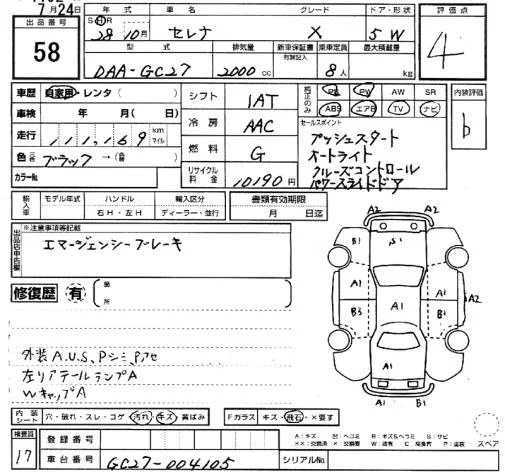 7月24日
出品番号
58
年式 車名 グレード ドア・形状
SHR 28年10月 セレナ X 5W
型式 排気量 新車保証書 乗車定員 最大積載量
有無記入
DAA-GC27 2000cc 8人 kg
評価点
4
車歴 自家用・レンタ( )
車検 年 月( 日)
走行 111,169 Km マイル
色 ブラック→( )
カラーNo.
シフト 1AT
冷房 AAC
燃料 G
リサイクル料金 10190円
純正のみ
PS PW AW SR
ABS エアB TV ナビ
セールスポイント
プッシュスタート
オートライト
クルーズコントロール
パワースライドドア
内装評価
b
輸入車
モデル年式 ハンドル 輸入区分 書類有効期限
右H・左H ディーラー・並行 月 日迄
出品店申告欄
※注意事項等記載
エマージェンシーブレーキ
修復歴 有 箇所
外装A.U.S、Pシミ、Pアセ
左リアテールランプA
WキャップA
A2 A2
B1 S1
A1 A1 A1 A2
B3 B1
A1
A2 A2
内装シート 穴・破れ・スレ・コゲ 汚れ・キズ・黄ばみ Fガラス キズ・飛石・×要す
検査員
17
登録番号
車台番号 GC27-004105 シリアルNo.
A:キズ U:ヘコミ B:キズ&ヘコミ S:サビ
スペア